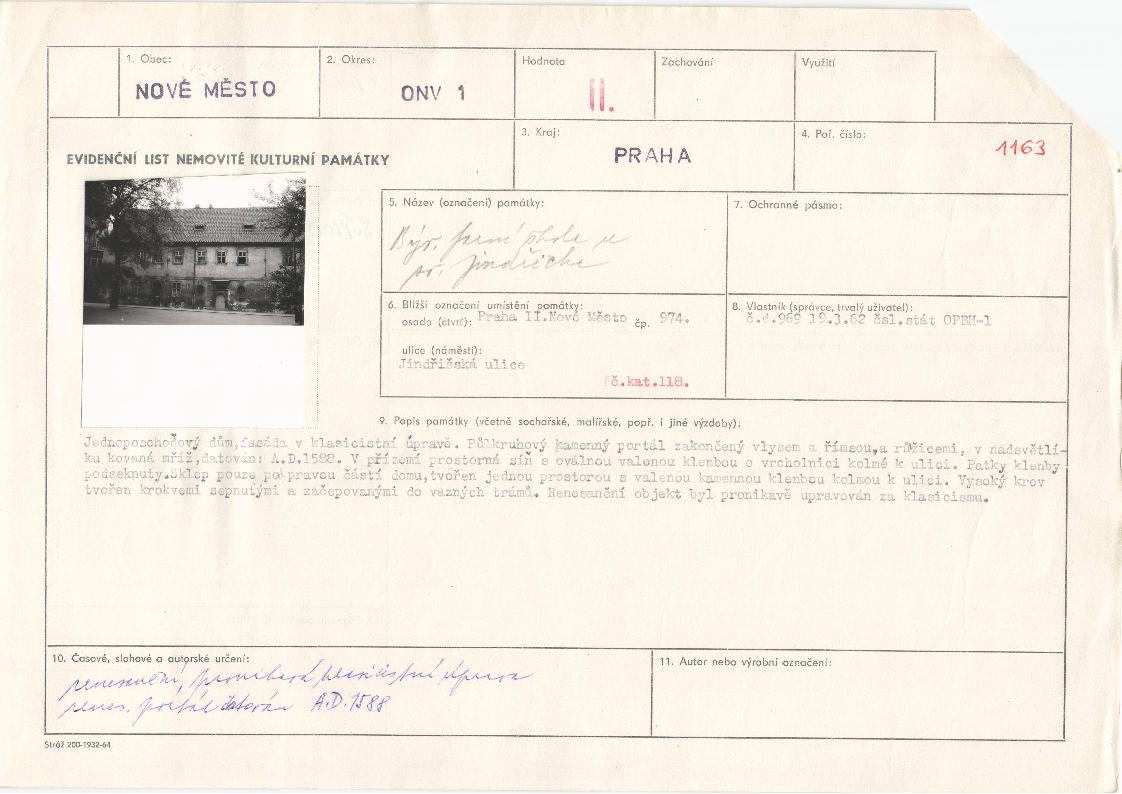 1. Obec:
NOVÉ MĚSTO
2. Okres:
ONV 1
Hodnota
II.
Zachování
Využití
EVIDENČNÍ LIST NEMOVITÉ KULTURNÍ PAMÁTKY
3. Kraj:
PRAHA
4. Poř. číslo:
1163
5. Název (označení) památky:
Býv. farní škola u
sv. Jindřicha
7. Ochranné pásmo:
6. Bližší označení umístění památky:
osada (čtvrť): Praha II.Nové Město čp. 974.
ulice (náměstí):
Jindřišská ulice
č.kat.118.
8. Vlastník (správce, trvalý uživatel):
č.d.969 19.3.62 čsl.stát OPBH-1
9. Popis památky (včetně sochařské, malířské, popř. i jiné výzdoby):
Jednoposchoďový dům,fasáda v klasicistní úpravě. Půlkruhový kamenný portál zakončený vlysem a římsou,a růžicemi, v nadsvětlí-
ku kovaná mříž,datován: A.D.1588. V přízemí prostorná síň s oválnou valenou klenbou o vrcholnici kolmé k ulici. Patky klenby
podseknuty.Sklep pouze po pravou částí domu,tvořen jednou prostorou s valenou kamennou klenbou kolmou k ulici. Vysoký krov
tvořen krokvemi sepnutými a začepovanými do vazných trámů. Renesanční objekt byl pronikavě upravován za klasicismu.
10. Časové, slohové a autorské určení:
renesanční, pronikavá klasicistní úprava
renes. portál datován A.D.1588
11. Autor nebo výrobní označení:
Stráž 200-1932-64